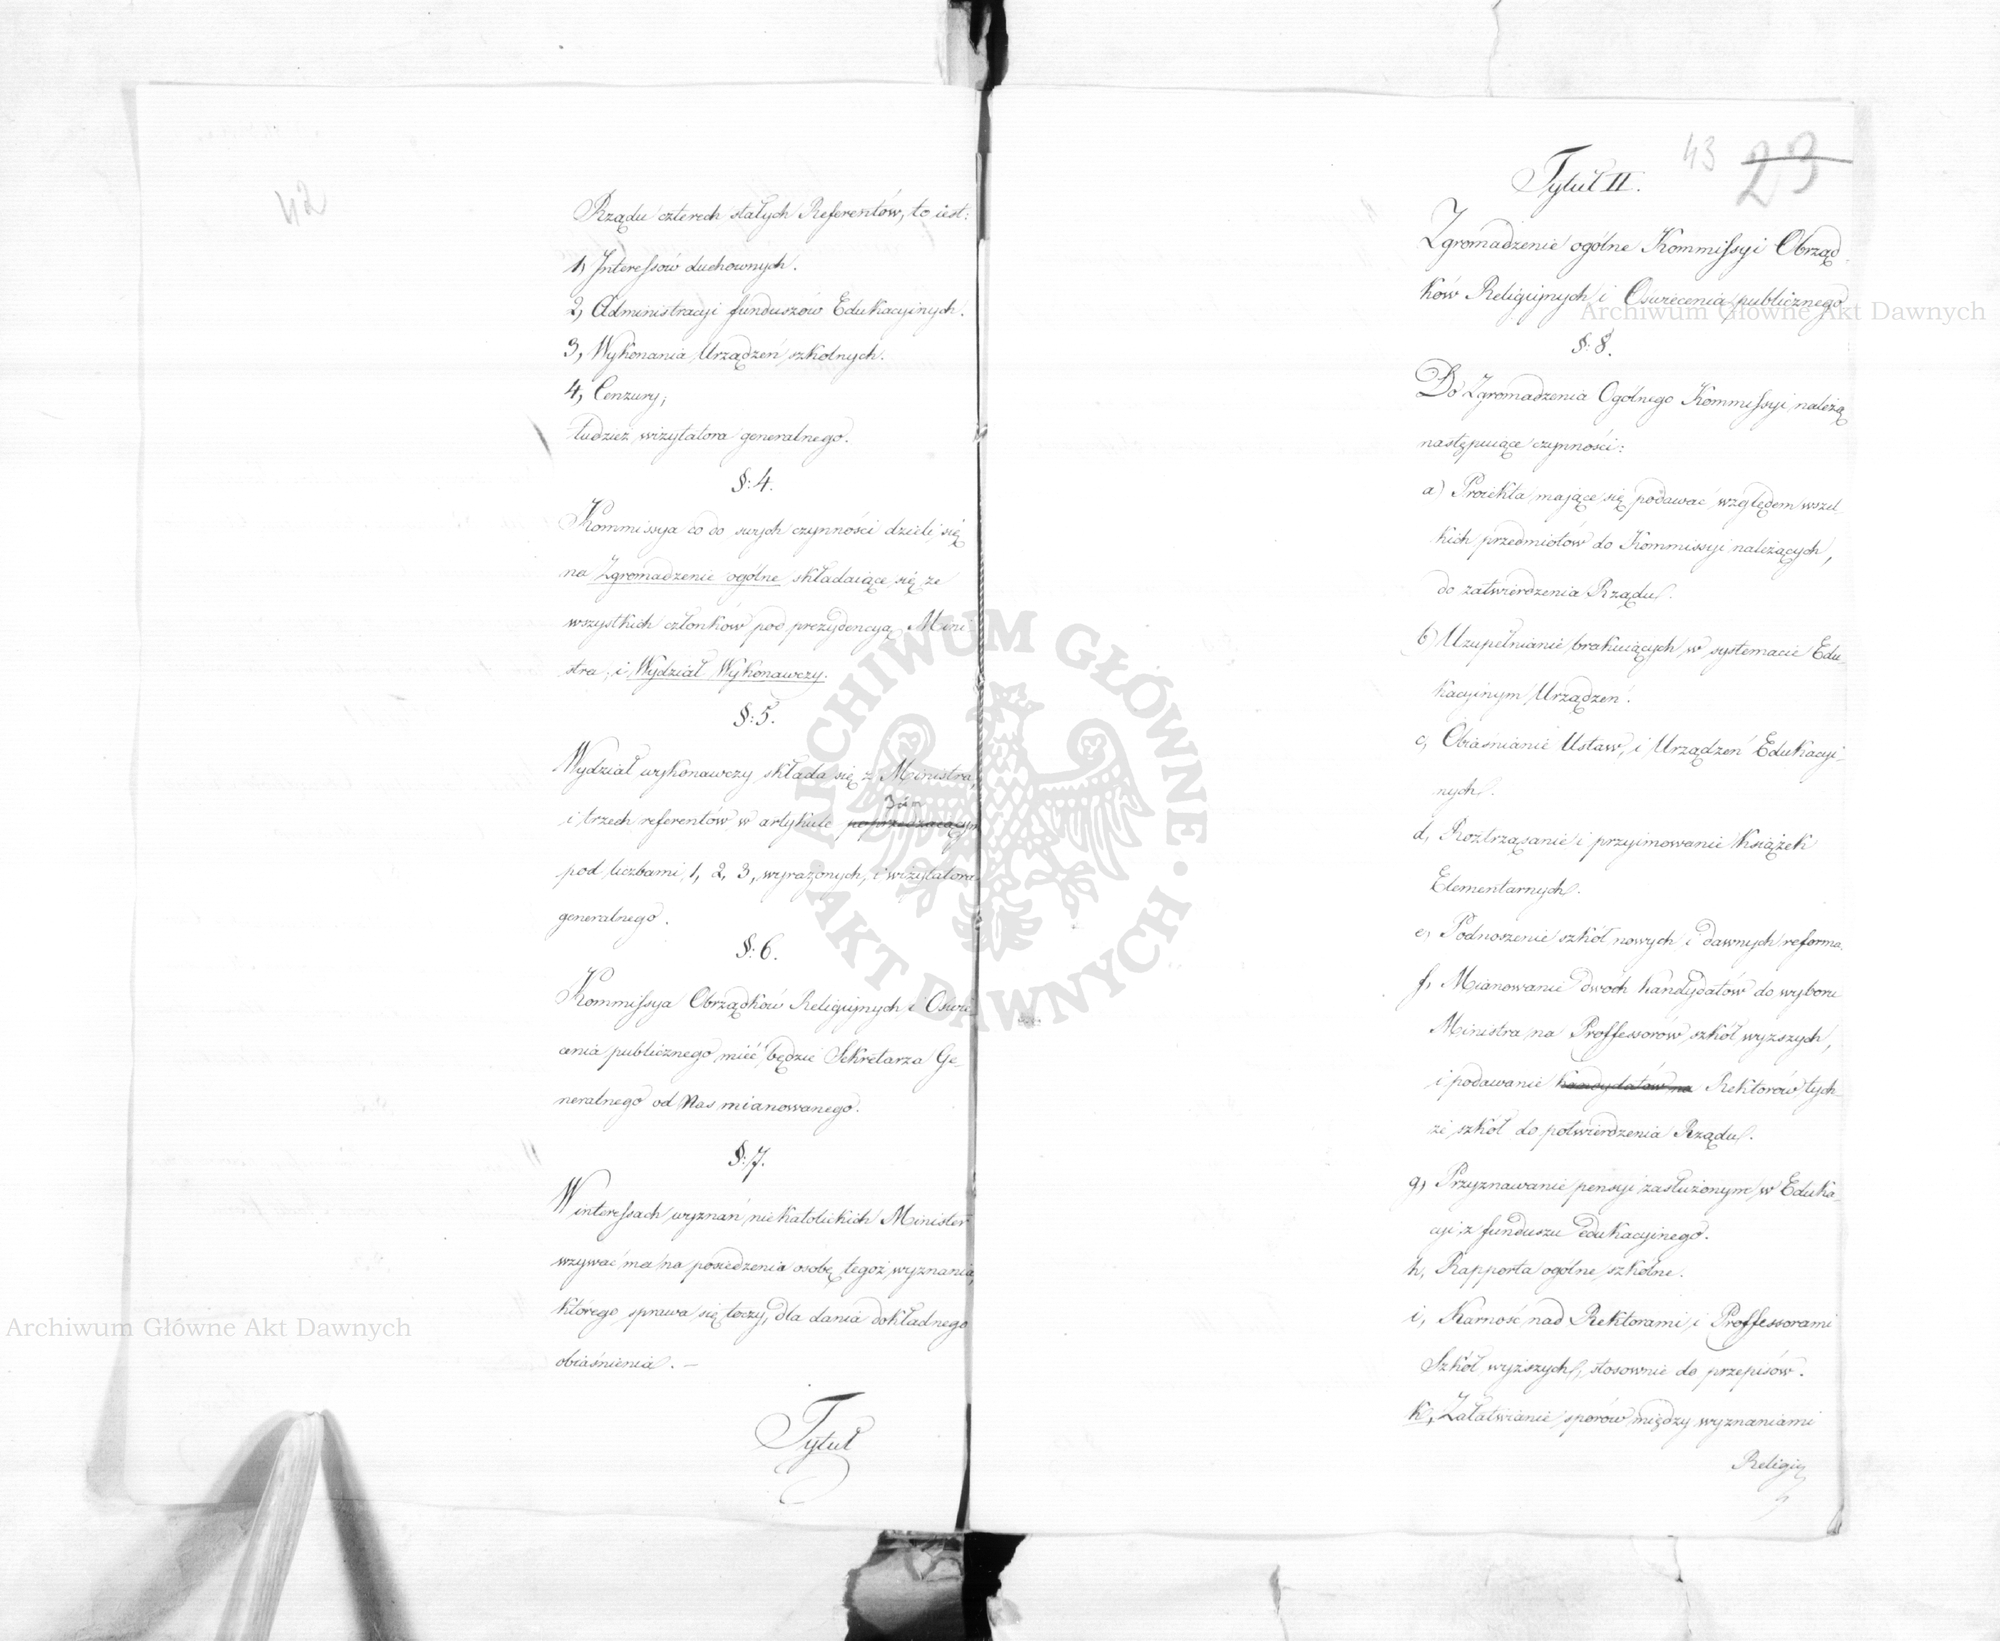 42
Rządu czterech stałych Referentów, to iest:
1, Interessów duchownych.
2, Administracyi funduszów Edukacyinych.
3, Wykonania Urządzeń szkolnych.
4, Cenzury;
tudzież wizytatora generalnego.
§: 4.
Kommissya co do swych czynności dzieli się
na Zgromadzenie ogólne składaiące się ze
wszystkich członków pod prezydencyą Mini-
stra, i Wydział Wykonawczy.
§: 5.
Wydział wykonawczy składa się z Ministra,
3im
i trzech referentów w artykule poprzedzaiącym
pod liczbami 1, 2, 3, wyrażonych, i wizytatora
generalnego.
§: 6.
Kommissya Obrządków Religijnych i Oświe-
cenia publicznego mieć będzie Sekretarza Ge-
neralnego od Nas mianowanego.
§: 7.
W interessach wyznań niekatolickich Minister
wzywać ma na posiedzenia osobę tegoż wyznania,
którego sprawa się toczy, dla dania dokładnego
obiaśnienia. —
Tytuł
43 23
Tytuł II.
Zgromadzenie ogólne Kommissyi Obrząd-
ków Religijnych i Oświecenia publicznego
§: 8.
Do Zgromadzenia Ogólnego Kommissyi należą
następuiące czynności:
a) Proiekta maiące się podawać względem wszel-
kich przedmiotów do Kommissyi należących,
do zatwierdzenia Rządu.
b) Uzupełnianie brakuiących w systemacie Edu-
kacyinym Urządzeń.
c, Obiaśnianie Ustaw, i Urządzeń Edukacyi-
nych.
d, Roztrząsanie i przyimowanie książek
Elementarnych.
e, Podnoszenie szkół nowych i dawnych reforma.
f, Mianowanie dwóch kandydatów do wyboru
Ministra na Proffessorów szkół wyższych,
i podawanie kandydatów na Rektorów tych-
że szkół do potwierdzenia Rządu.
g, Przyznawanie pensyi zasłużonym w Eduka-
cyi z funduszu edukacyinego.
h, Rapporta ogólne szkolne.
i, Karność nad Rektorami i Proffessorami
Szkół wyższych, stosownie do przepisów.
k, Załatwianie sporów między wyznaniami
Religii
Archiwum Główne Akt Dawnych
Archiwum Główne Akt Dawnych
ARCHIWUM GŁÓWNE · AKT DAWNYCH ·